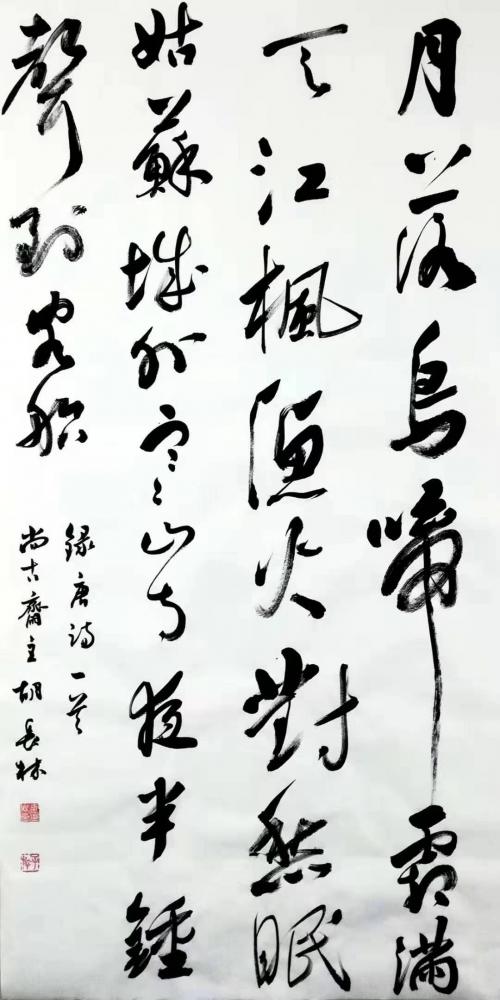 月落烏啼霜滿
天江楓漁火對愁眠
姑蘇城外寒山寺夜半鍾
聲到客船
錄唐詩一首
尚古齋主胡長林